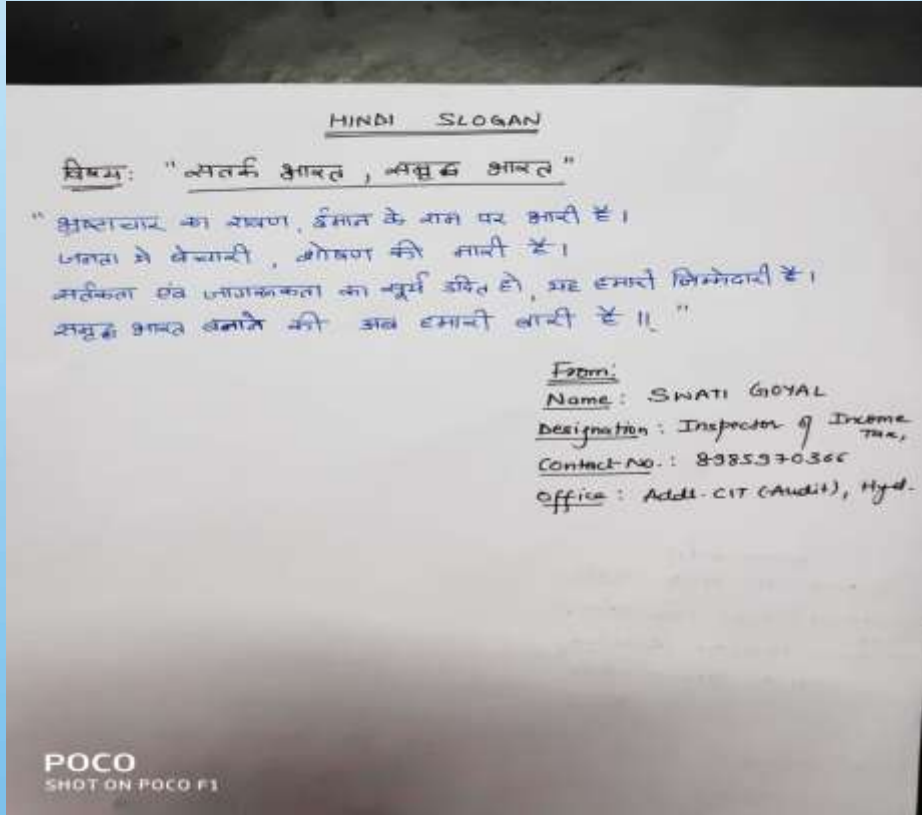 HINDI SLOGAN
विषय: "सतर्क भारत, समृद्ध भारत"
"भ्रष्टाचार का रावण, ईमान के राम पर भारी है।
जनता ये बेचारी, शोषण की मारी है।
सर्तकता एंव जागरूकता का सूर्य उदित हो, यह हमारी जिम्मेदारी है।
समृद्ध भारत बनाने की अब हमारी बारी है॥"
From:
Name: SWATI GOYAL
Designation: Inspector of Income Tax,
Contact No.: 8985970366
Office: Addl. CIT (Audit), Hyd.
POCO
SHOT ON POCO F1